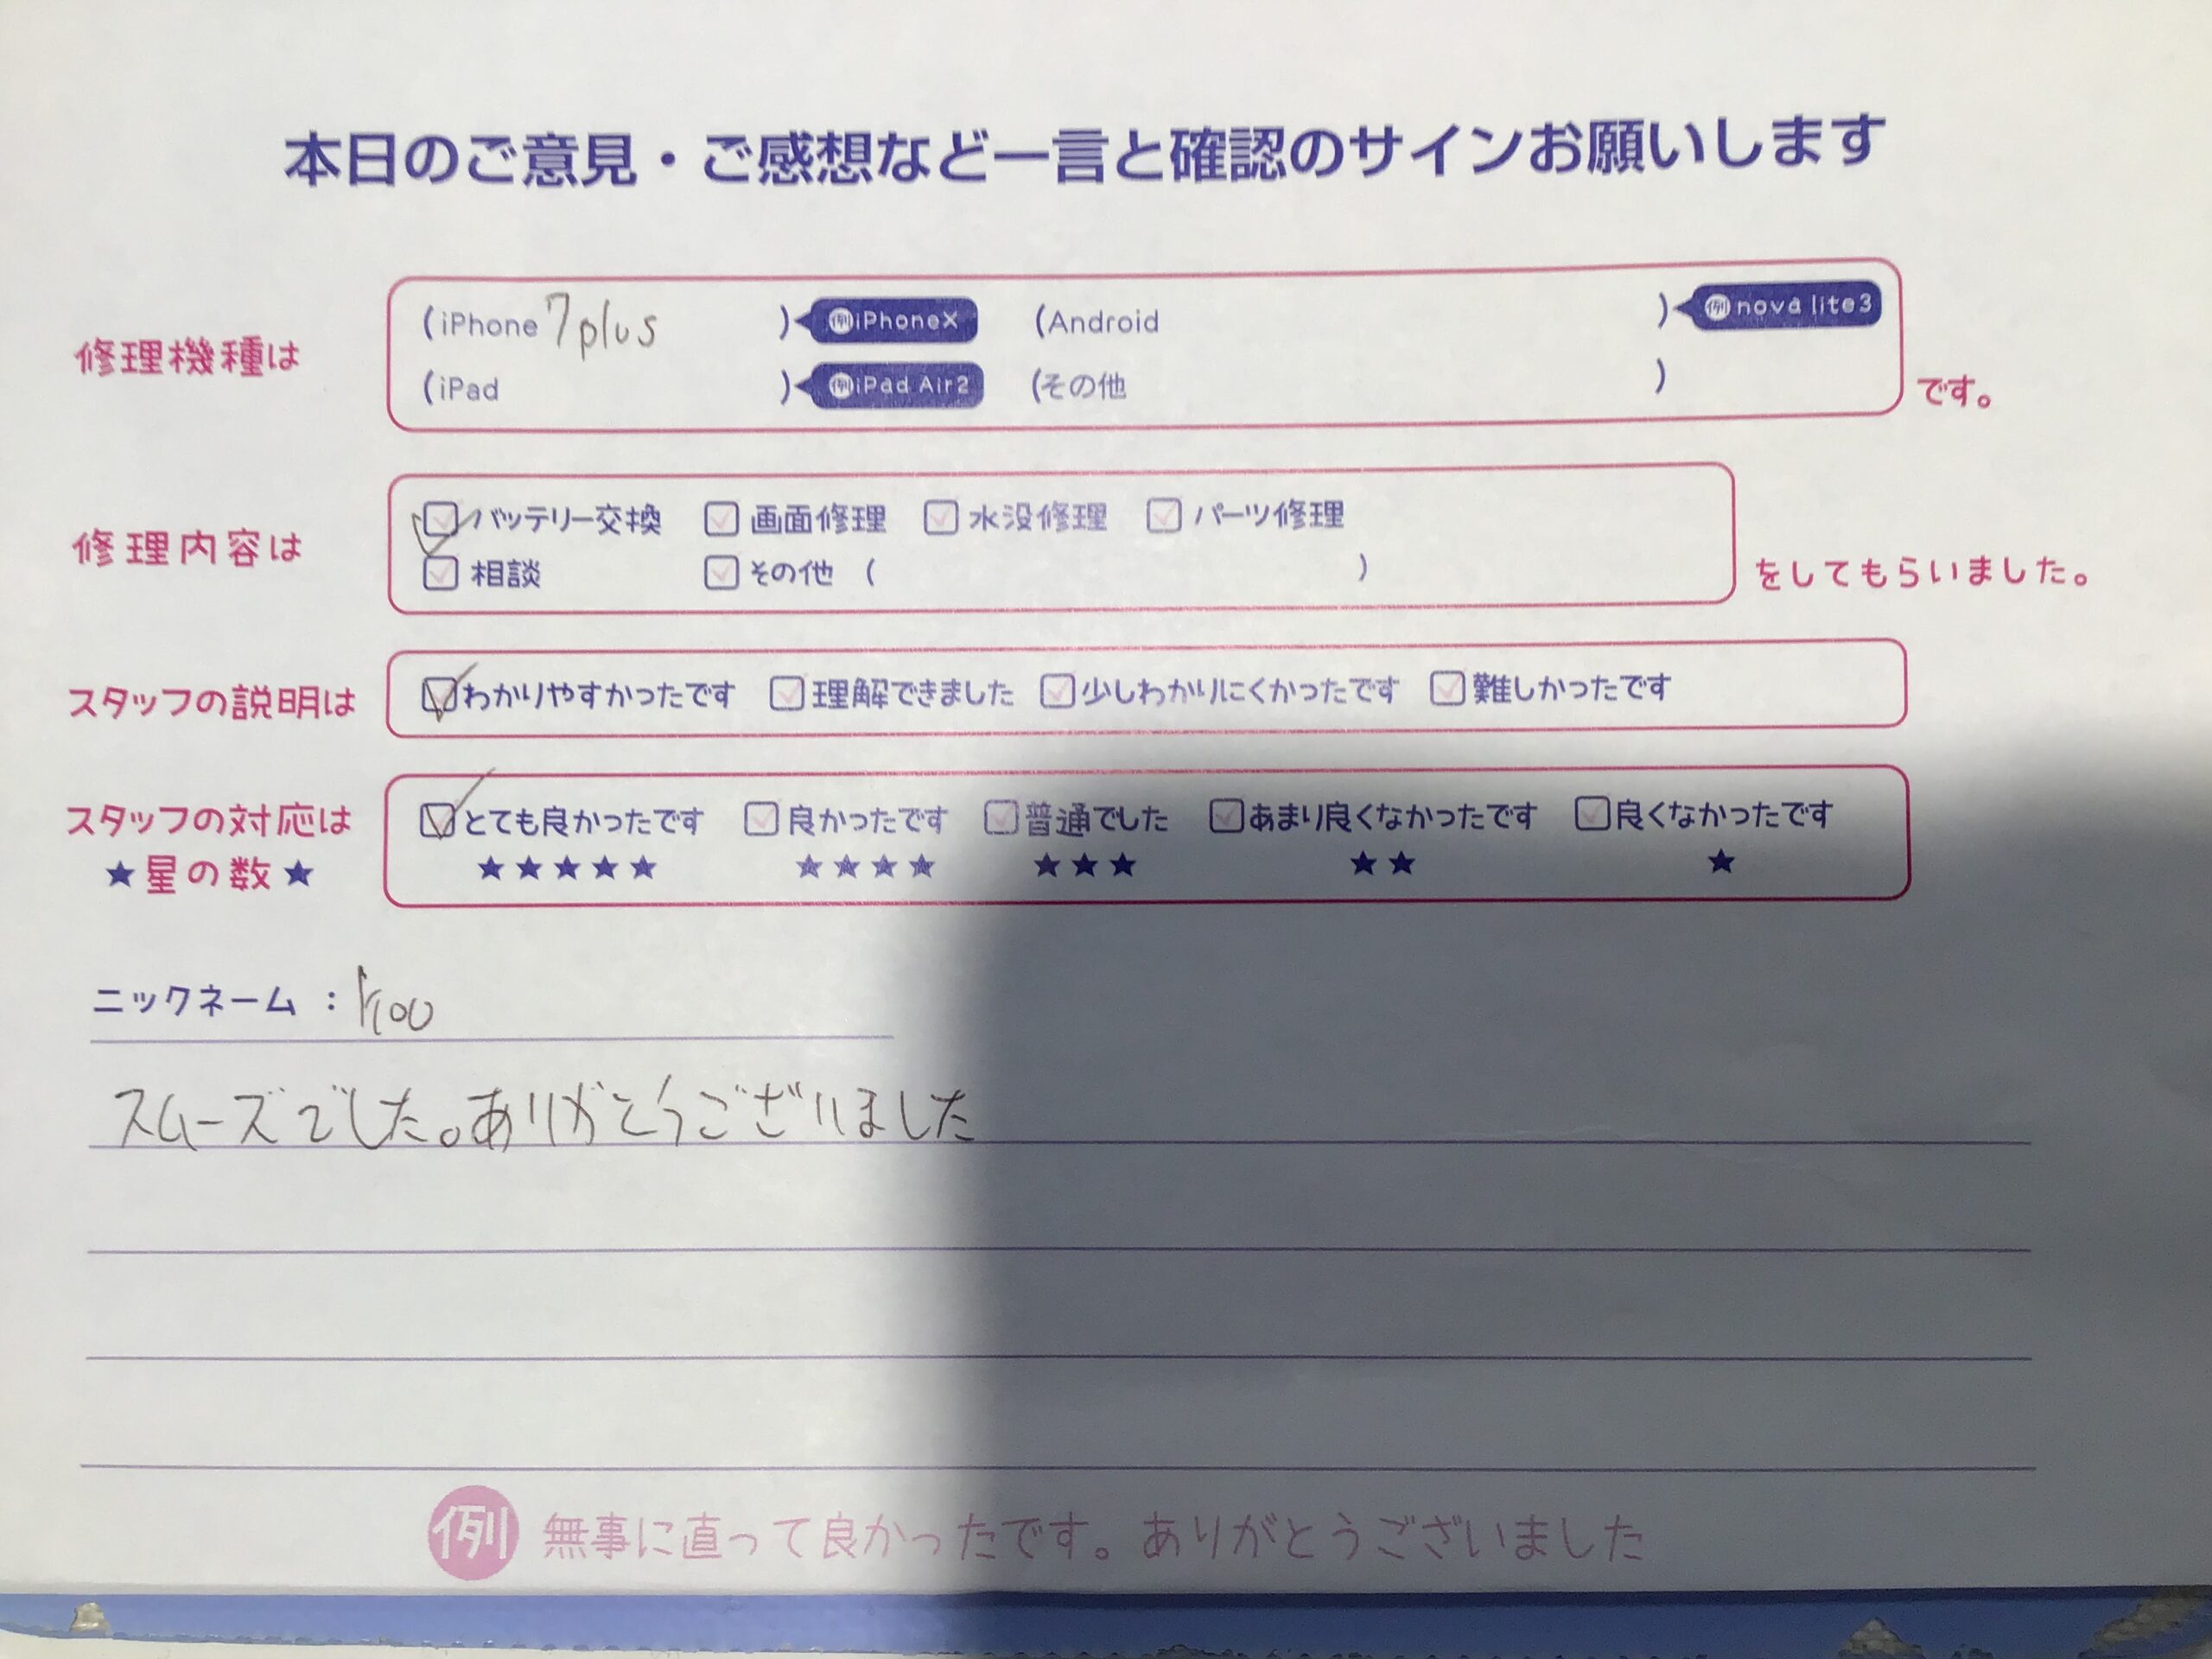 本日のご意見・ご感想など一言と確認のサインお願いします
修理機種は
(iPhone 7plus ) 例iPhoneX (Android ) 例nova lite3
(iPad ) 例iPad Air2 (その他 ) です。
修理内容は
☑バッテリー交換 ☑画面修理 ☑水没修理 ☑パーツ修理
☑相談 ☑その他 ( ) をしてもらいました。
スタッフの説明は ☑わかりやすかったです ☑理解できました ☑少しわかりにくかったです ☑難しかったです
スタッフの対応は ☑とても良かったです ☑良かったです ☑普通でした ☑あまり良くなかったです ☑良くなかったです
★星の数★ ★★★★★ ★★★★ ★★★ ★★ ★
ニックネーム：
スムーズでした。ありがとうございました
例 無事に直って良かったです。ありがとうございました